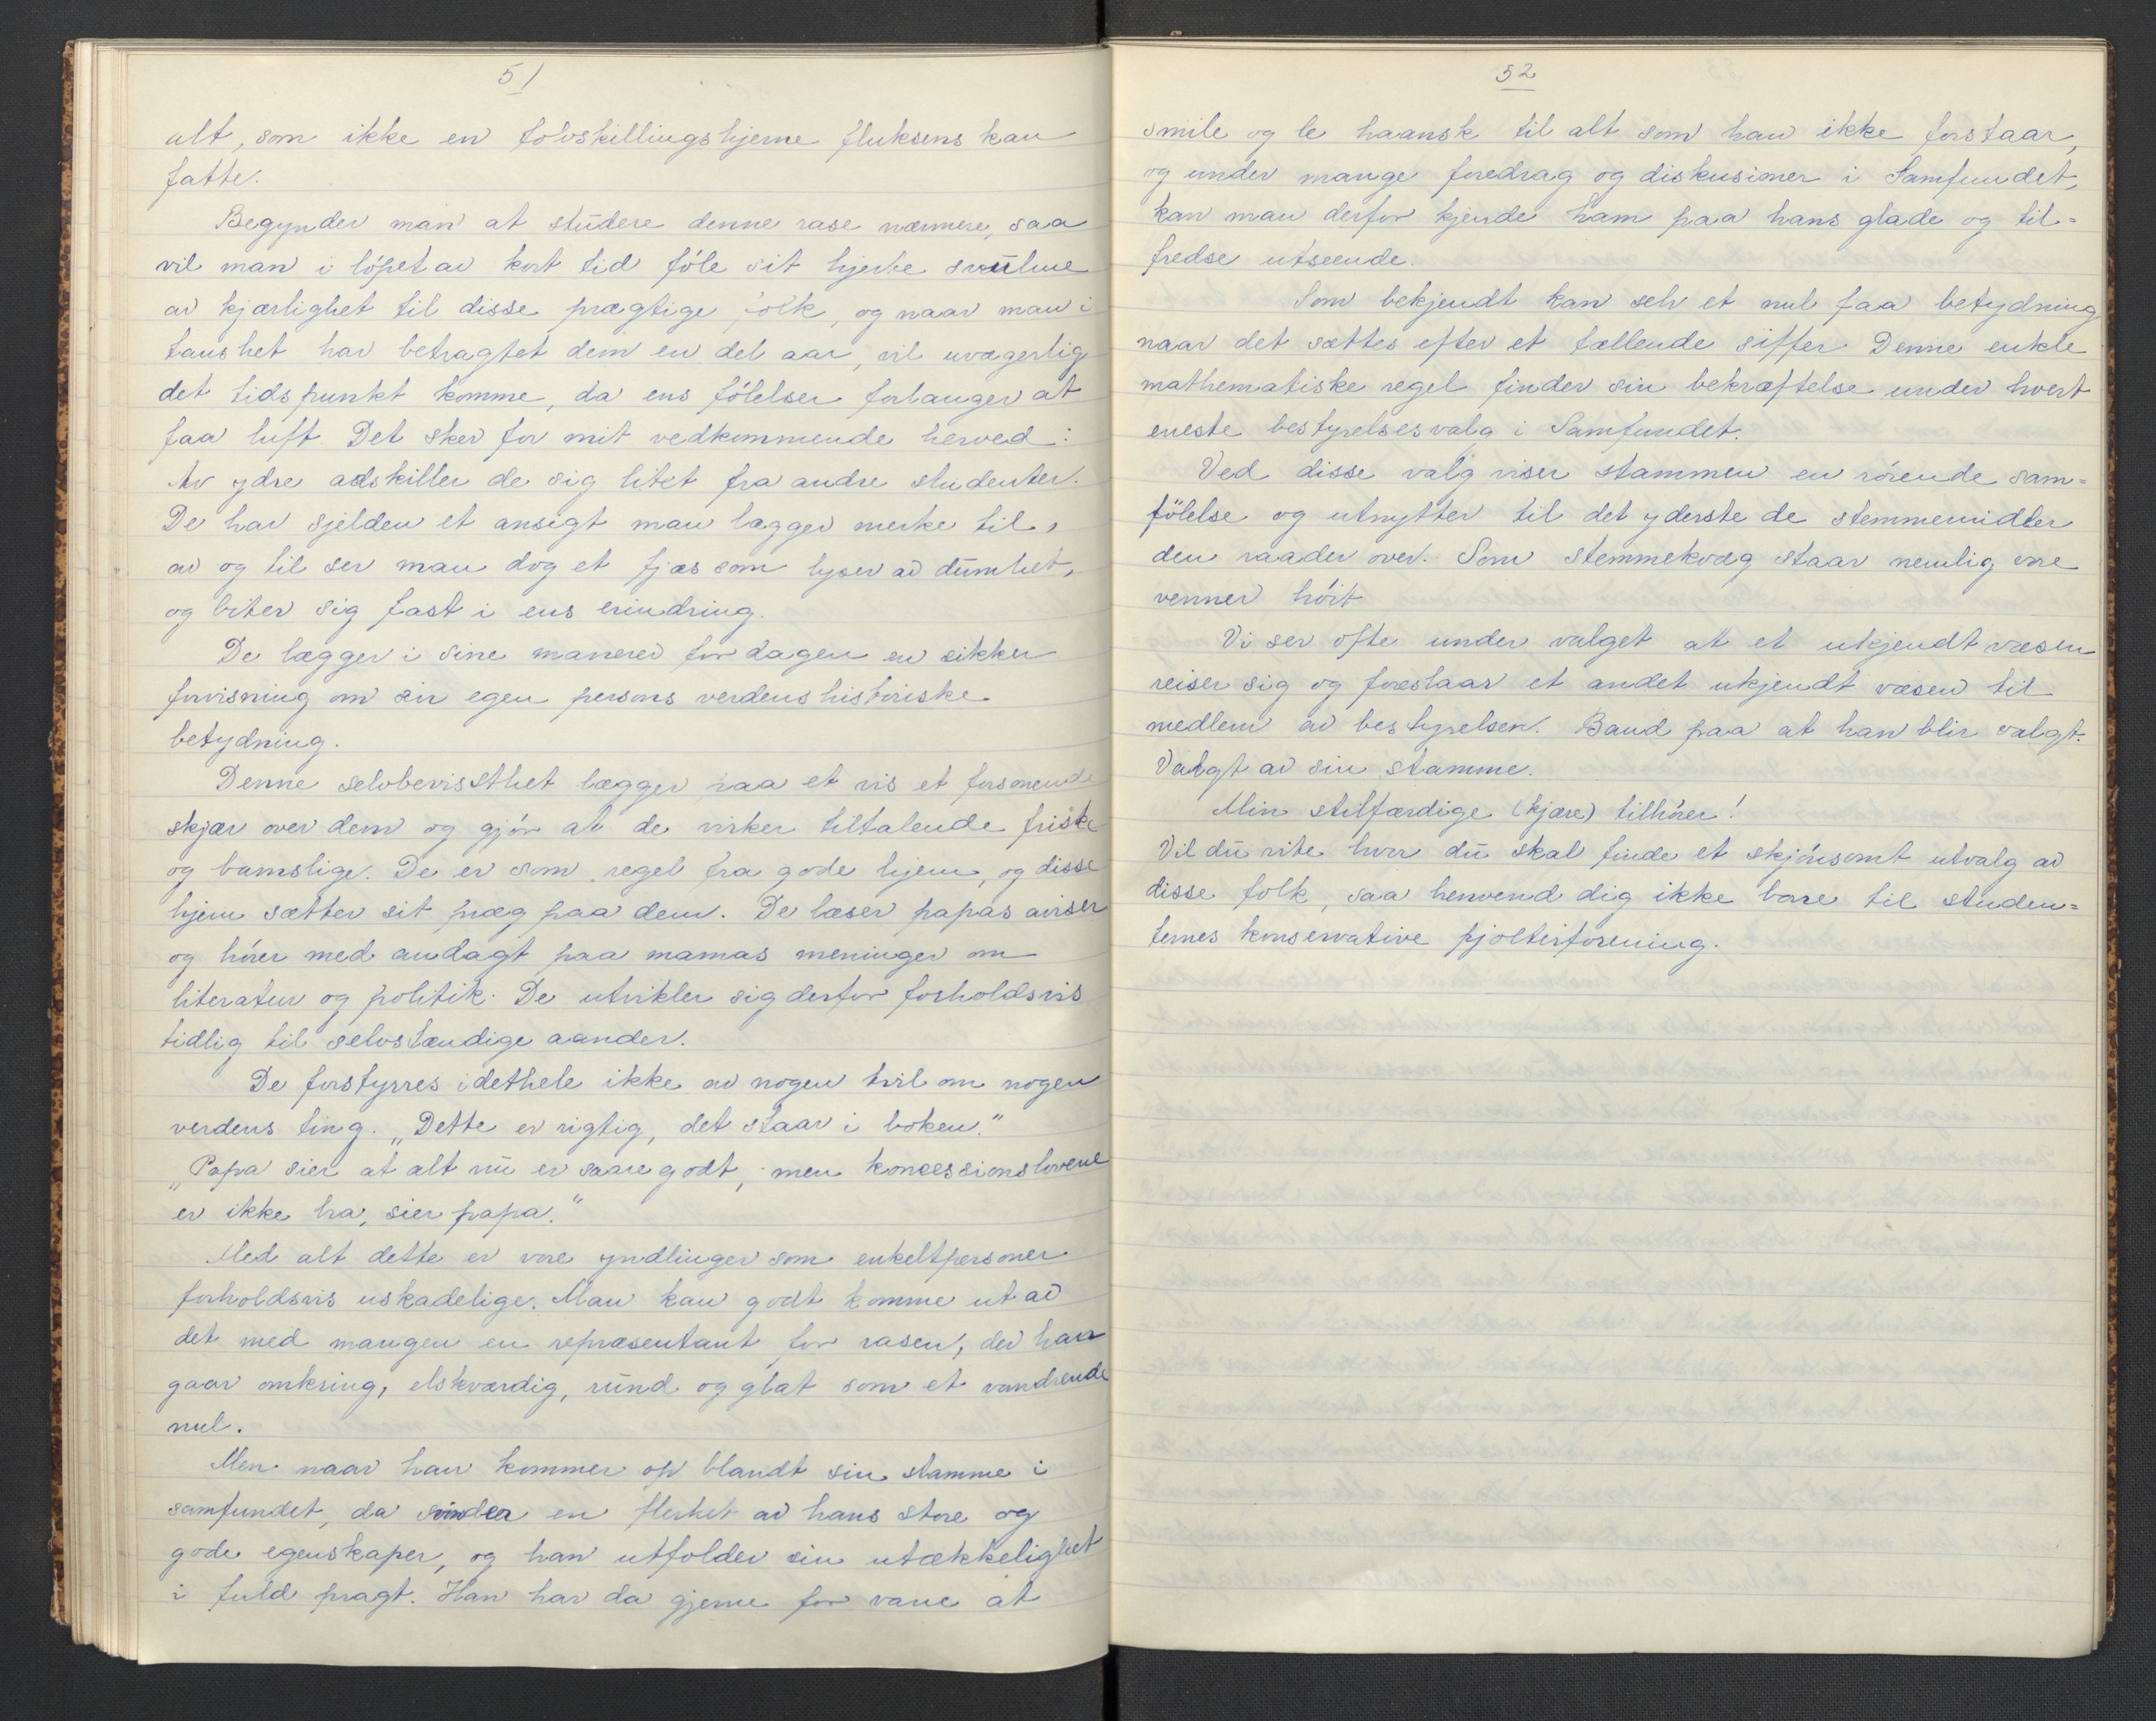 51
alt, som ikke en tolvskillingshjerne fluksens kan
fatte.
Begynder man at studere denne rase nærmere, saa
vil man i löpet av kort tid föle sit hjerte svulme
av kjærlighet til disse prægtige folk, og naar man i
taushet har betragtet dem en del aar, vil uvægerlig
det tidspunkt komme, da ens fölelser forlanger at
faa luft. Det sker for mit vedkommende herved:
Av ydre adskiller de sig litet fra andre studenter.
De har sjelden et ansigt man lægger merke til,
av og til ser man dog et fjæs som lyser av dumhet,
og biter sig fast i ens erindring.
De lægger i sine manerer for dagen en sikker
forvisning om sin egen persons verdenshistoriske
betydning.
Denne selvbevissthet lægger paa et vis et forsonende
skjær over dem og gjör at de virker tiltalende friske
og barnslige. De er som regel fra gode hjem, og disse
hjem sætter sit præg paa dem. De læser papas aviser
og hörer med andagt paa mamas meninger om
literatur og politik. De utvikler sig derfor forholdsvis
tidlig til selvstændige aander.
De forstyrres idethele ikke av nogen tvil om nogen
verdens ting. „Dette er rigtig, det staar i boken."
„Papa sier at alt nu er saare godt, men koncessionslovene
er ikke bra, sier papa."
Med alt dette er vore yndlinger som enkeltpersoner
forholdsvis uskadelige. Man kan godt komme ut av
det med mangen en repræsentant for rasen, der han
gaar omkring, elskværdig, rund og glat som et vandrende
nul.
Men naar han kommer op blandt sin stamme i
samfundet, da svinder en flerhet av hans store og
gode egenskaper, og han utfolder sin utækkelighet
i fuld pragt. Han har da gjerne for vane at
52
smile og le haansk til alt som han ikke forstaar,
og under mange foredrag og diskusimer i Samfundet,
kan man derfor kjende ham paa hans glade og til=
fredse utseende.
Som bekjendt kan selv et nul faa betydning
naar det sættes efter et tællende siffer Denne enkle
mathematiske regel finder sin bekræftelse under hvert
eneste bestyrelsesvalg i Samfundet.
Ved disse valg viser stammen en rörende sam=
fölelse og utnytter til det yderste de stemmemidler
den raader over. Som stemmekvæg staar nemlig vore
venner höit
Vi ser ofte under valget at et ukjendt væsen
reiser sig og foreslaar et andet ukjendt væsen til
medlem av bestyrelsen. Band paa at han blir valgt.
Valgt av sin stamme.
Min stilfærdige (kjære) tilhörer!
Vil du vite hvor du skal finde et skjönsomt utvalg av
disse folk, saa henvend dig ikke bare til studen=
ternes konservative pjolterforening.